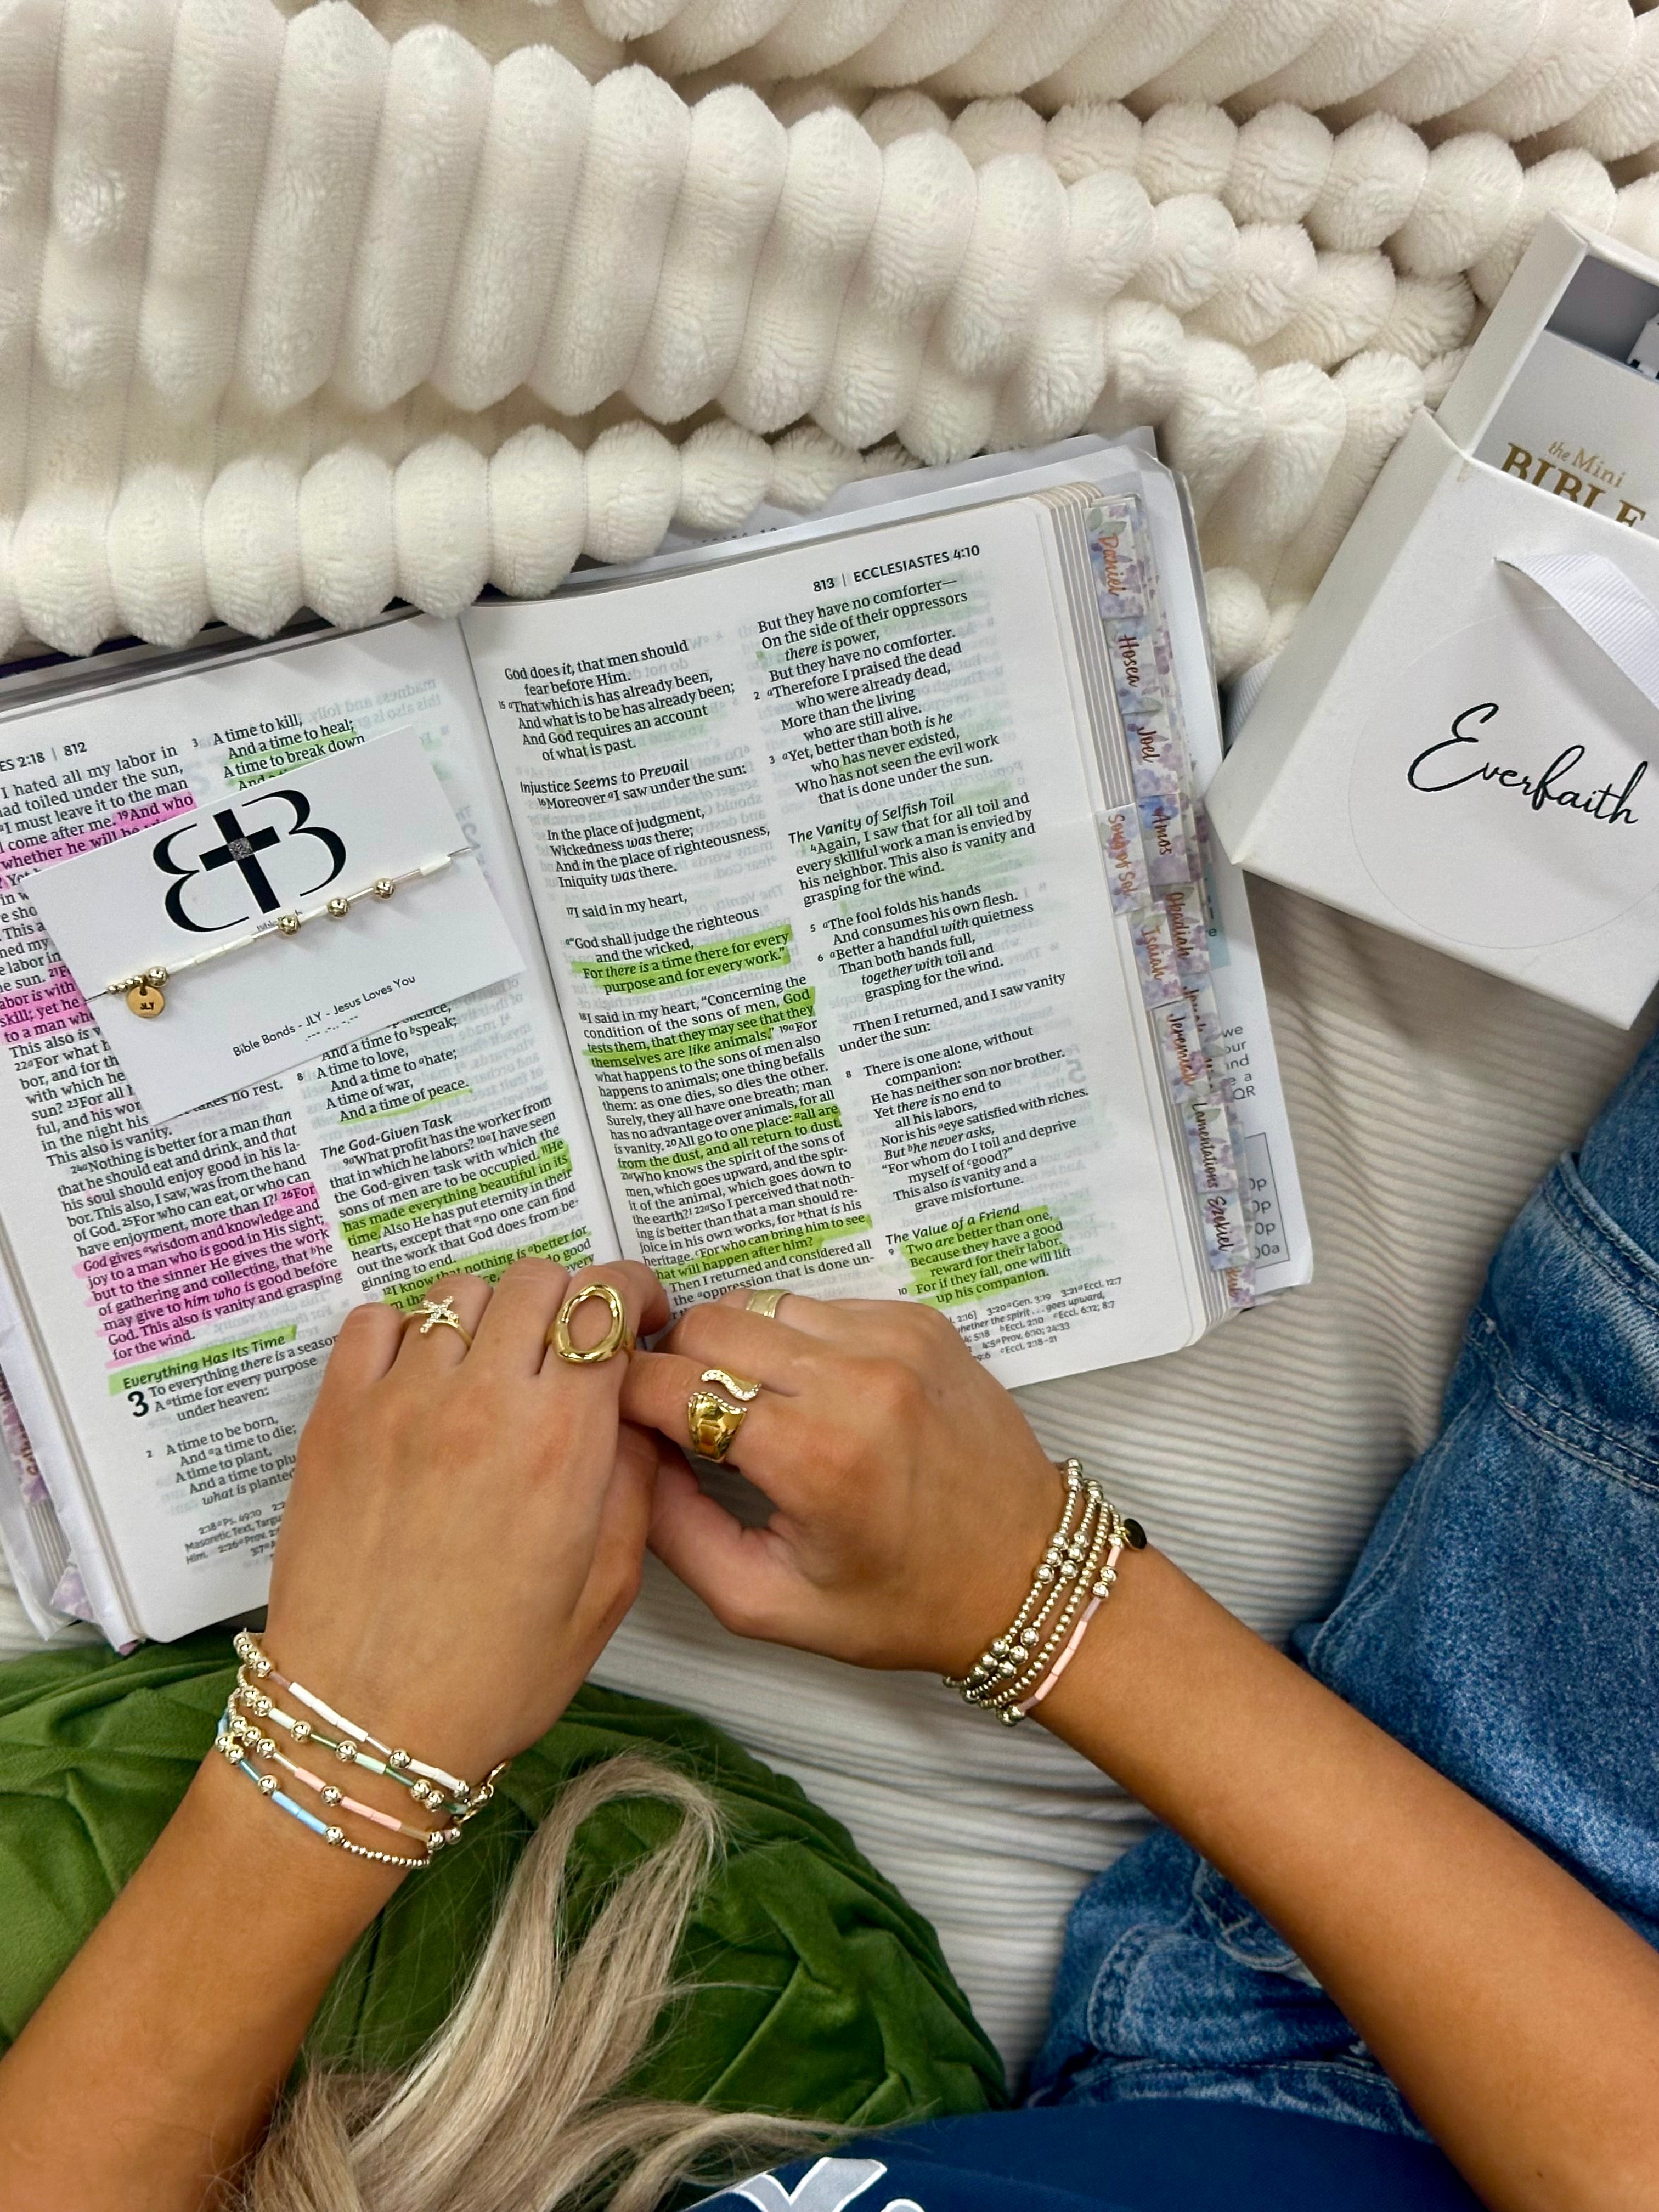 ES 2:18 | 812
I hated all my labor in
ad toiled under the sun,
I must leave it to the man
come after me. 19And who
whether he will be
This also is v
22aFor what h
bor, and for th
with which he
sun? 23For all h
ful, and his wor
in the night his takes no rest.
This also is vanity.
24aNothing is better for a man than
that he should eat and drink, and that
his soul should enjoy good in his la-
bor. This also, I saw, was from the hand
of God. 25For who can eat, or who can
have enjoyment, more than I?1 26For
God gives awisdom and knowledge and
joy to a man who is good in His sight;
but to the sinner He gives the work
of gathering and collecting, that bhe
may give to him who is good before
God. This also is vanity and grasping
for the wind.
Everything Has Its Time
3 To everything there is a season,
A atime for every purpose
under heaven:
2 A time to be born,
And aa time to die;
A time to plant,
And a time to plu
what is planted
2:18 aPs. 49:10
Masoretic Text, Targu
Him. 2:26 aProv.
3 A time to kill,
And a time to heal;
A time to break down
BB
Bible Bands - JLY - Jesus Loves You
JLY
And a time to bspeak;
8 A time to love,
And a time to ahate;
A time of war,
And a time of peace.
The God-Given Task
9aWhat profit has the worker from
that in which he labors? 10aI have seen
the God-given task with which the
sons of men are to be occupied. 11He
has made everything beautiful in its
time. Also He has put eternity in their
hearts, except that ano one can find
out the work that God does from be-
ginning to end.
12I know that nothing is abetter for
do good
every
813 | ECCLESIASTES 4:10
God does it, that men should
fear before Him.
15 aThat which is has already been,
And what is to be has already been;
And God requires an account
of what is past.
Injustice Seems to Prevail
16Moreover aI saw under the sun:
In the place of judgment,
Wickedness was there;
And in the place of righteousness,
Iniquity was there.
17I said in my heart,
a"God shall judge the righteous
and the wicked,
For there is a time there for every
purpose and for every work."
18I said in my heart, "Concerning the
condition of the sons of men, God
tests them, that they may see that they
themselves are like animals." 19aFor
what happens to the sons of men also
happens to animals; one thing befalls
them: as one dies, so dies the other.
Surely, they all have one breath; man
has no advantage over animals, for all
is vanity. 20All go to one place: aall are
from the dust, and all return to dust.
21aWho knows the spirit of the sons of
men, which goes upward, and the spir-
it of the animal, which goes down to
the earth?1 22aSo I perceived that noth-
ing is better than that a man should re-
joice in his own works, for bthat is his
heritage. cFor who can bring him to see
hat will happen after him?
Then I returned and considered all
the aoppression that is done un-
But they have no comforter—
On the side of their oppressors
there is power,
But they have no comforter.
2 aTherefore I praised the dead
who were already dead,
More than the living
who are still alive.
3 aYet, better than both is he
who has never existed,
Who has not seen the evil work
that is done under the sun.
The Vanity of Selfish Toil
4Again, I saw that for all toil and
every skillful work a man is envied by
his neighbor. This also is vanity and
grasping for the wind.
5 aThe fool folds his hands
And consumes his own flesh.
6 aBetter a handful with quietness
Than both hands full,
together with toil and
grasping for the wind.
7Then I returned, and I saw vanity
under the sun:
8 There is one alone, without
companion:
He has neither son nor brother.
Yet there is no end to
all his labors,
Nor is his aeye satisfied with riches.
But bhe never asks,
"For whom do I toil and deprive
myself of cgood?"
This also is vanity and a
grave misfortune.
The Value of a Friend
9 Two are better than one,
Because they have a good
reward for their labor.
10 For if they fall, one will lift
up his companion.
2:16] 3:20 aGen. 3:19 3:21 aEccl. 12:7
whether the spirit . . . goes upward,
5:18 bEccl. 2:10 cEccl. 6:12; 8:7
4:5 aProv. 6:10; 24:33
cEccl. 2:18–21
Daniel
Hosea
Joel
Amos
Obadiah
Song of Sol
Isaiah
Jeremiah
Lamentations
Ezekiel
the Mini
BIBLE
Everfaith